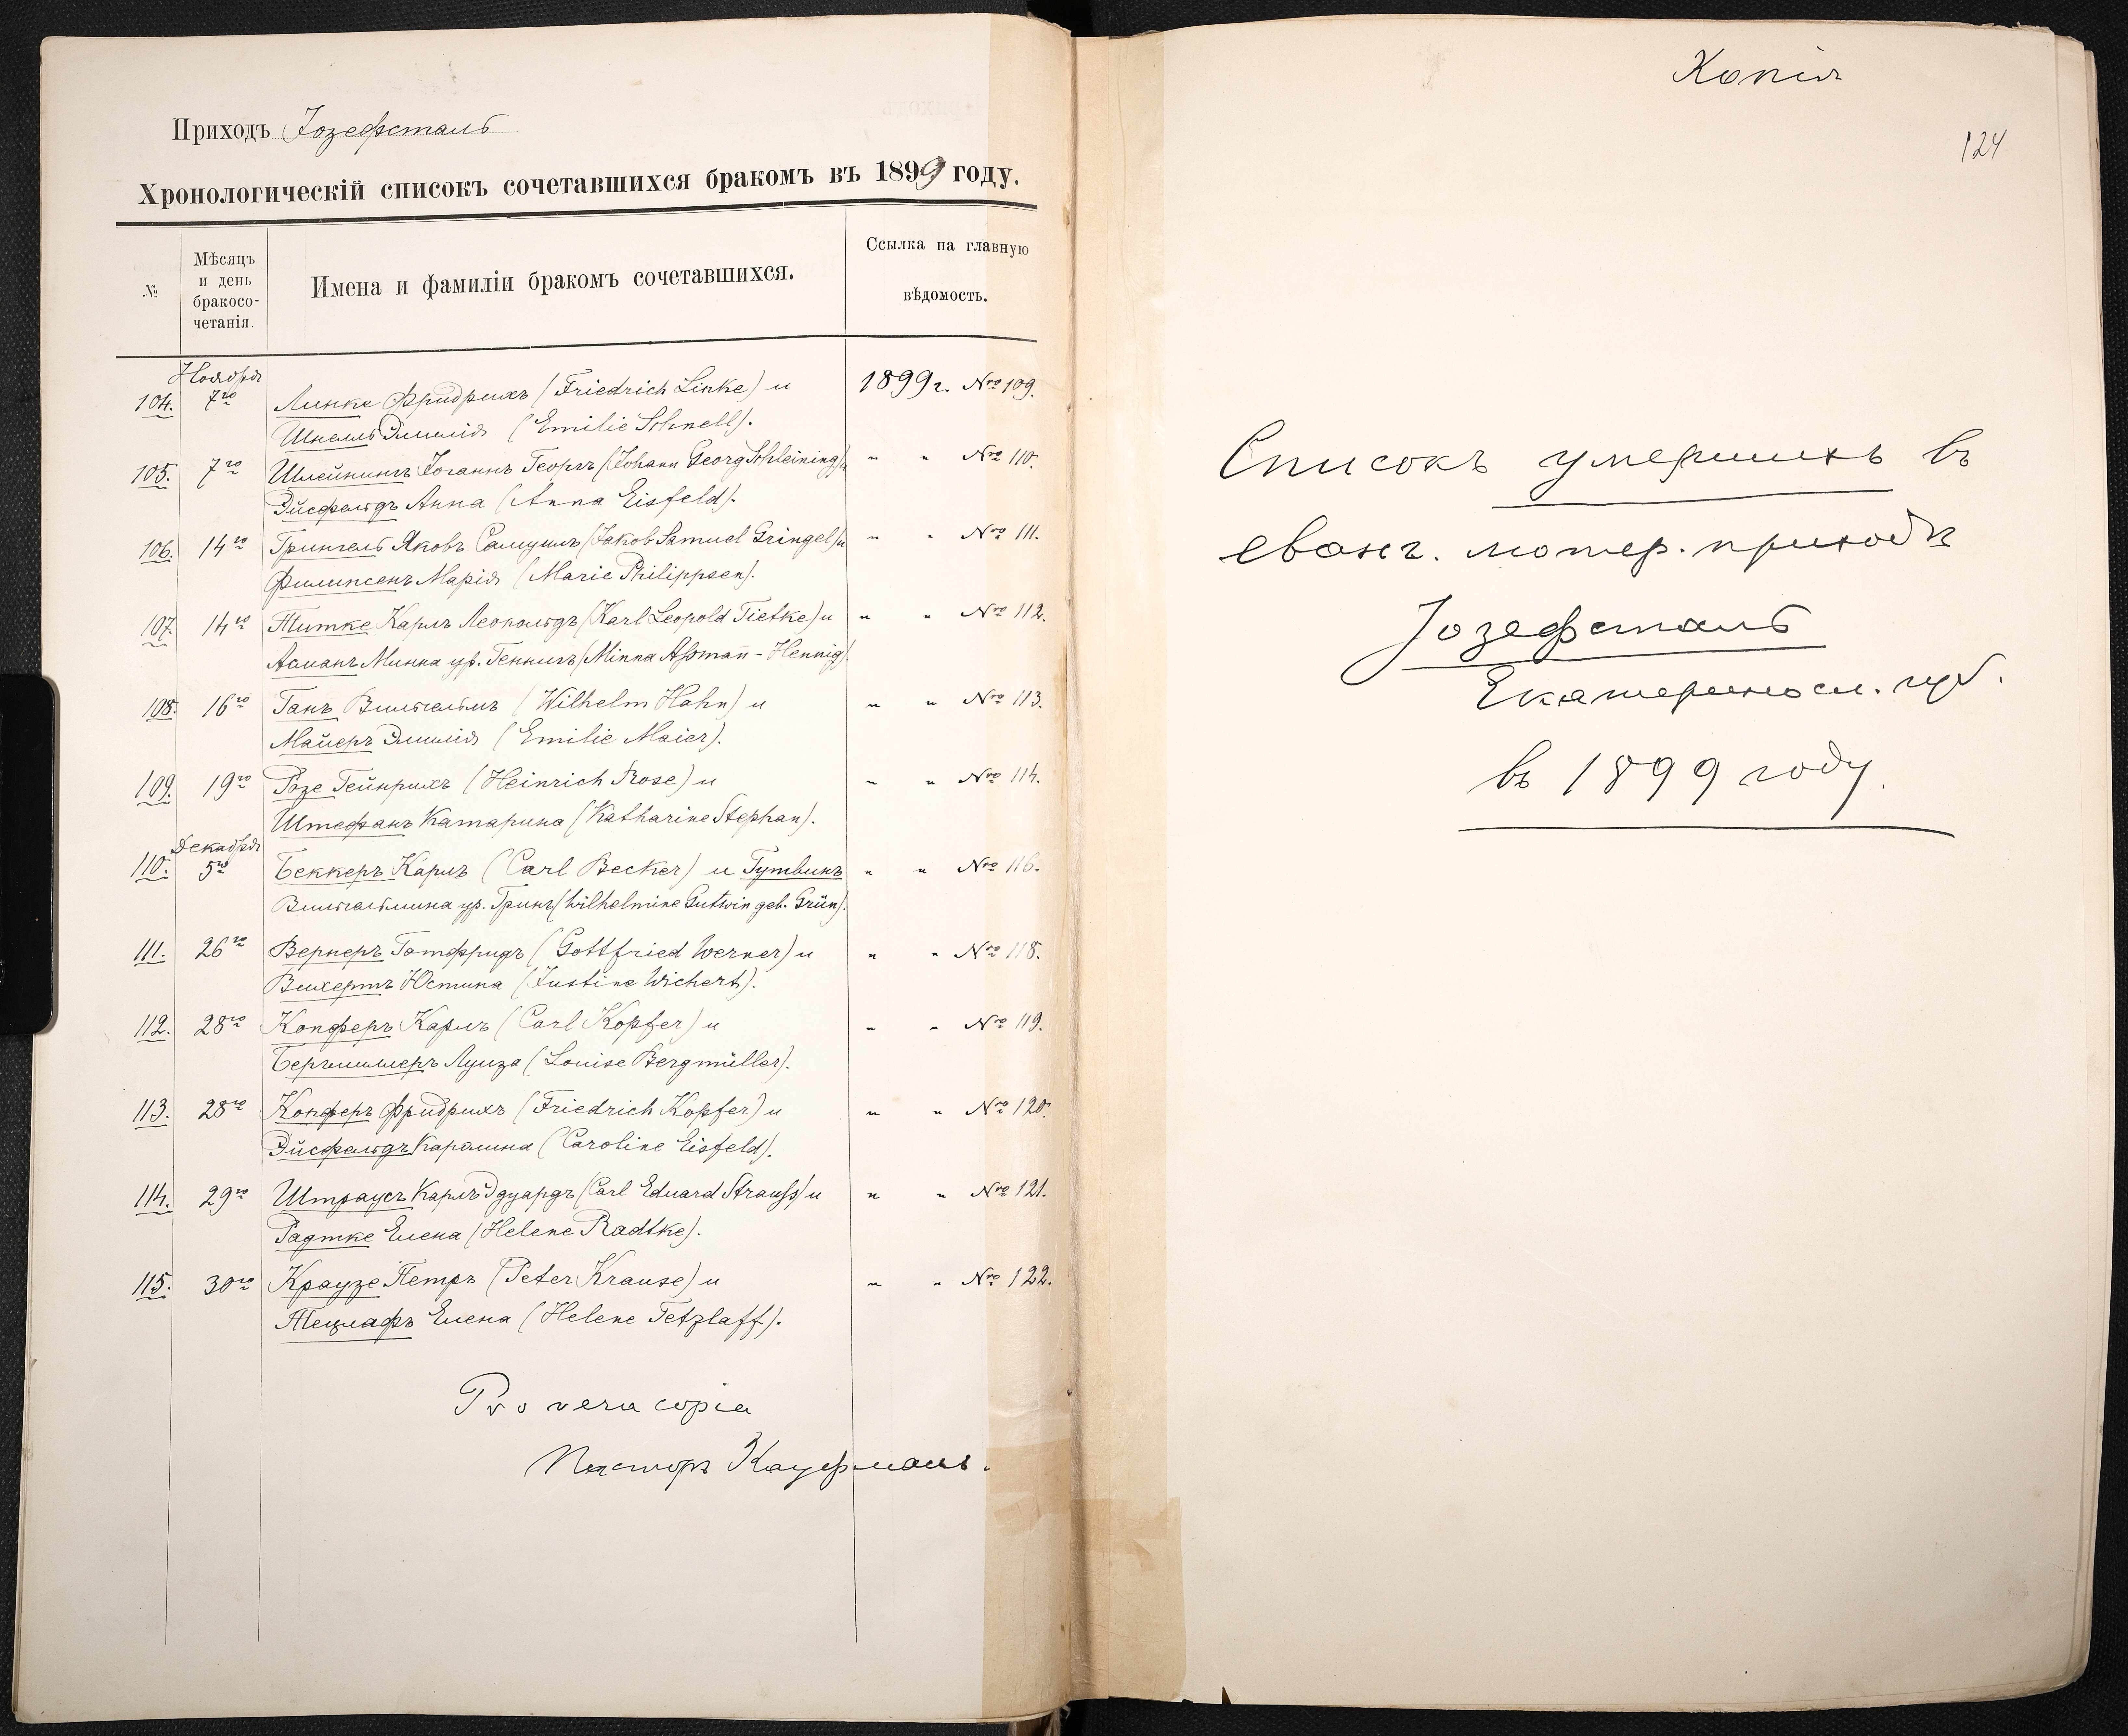 Приходъ Іозефсталь
Хронологическій списокъ сочетавшихся бракомъ въ 1899 году.
№
Мѣсяцъ
и день
бракосо-
четанія.
Имена и фамиліи бракомъ сочетавшихся.
Ссылка на главную
вѣдомость.
Ноября
104. 7го Линке Фридрихъ (Friedrich Linke) и 1899 г. Nro 109.
Шнелль Эмилія (Emilie Schnell).
105. 7го Шлейнингъ Іоганнъ Георгъ (Johann Georg Schleining) и " " Nro 110.
Эйсфельдъ Анна (Anna Eisfeld).
106. 14го Грингель Яковъ Самуилъ (Jakob Samuel Gringel) и " " Nro 111.
Филипсенъ Марія (Marie Philippsen).
107. 14го Титке Карлъ Леопольдъ (Karl Leopold Tietke) и " " Nro 112.
Асманъ Минна ур. Геннигъ (Minna Aßmañ - Hennig).
108. 16го Ганъ Вильгельмъ (Wilhelm Hahn) и " " Nro 113.
Майеръ Эмилія (Emilie Maier).
109. 19го Розе Гейнрихъ (Heinrich Rose) и " " Nro 114.
Штефанъ Катарина (Katharine Stephan).
Декабря
110. 5го Беккеръ Карлъ (Carl Becker) и Гутвинъ " " Nro 116.
Вильгельмина ур. Гринъ (Wilhelmine Gutwin geb. Grün).
111. 26го Вернеръ Готфридъ (Gottfried Werner) и " " Nro 118.
Вихертъ Юстина (Justine Wichert).
112. 28го Копферъ Карлъ (Carl Kopfer) и " " Nro 119.
Бергмиллеръ Луиза (Louise Bergmüller).
113. 28го Копферъ Фридрихъ (Friedrich Kopfer) и " " Nro 120.
Эйсфельдъ Каролина (Caroline Eisfeld).
114. 29го Штраусъ Карлъ Эдуардъ (Carl Eduard Strauß) и " " Nro 121.
Радтке Елена (Helene Radtke).
115. 30го Краузе Петръ (Peter Krause) и " " Nro 122.
Тецлафъ Елена (Helene Tetzlaff).
Pro vera copia
Пасторъ Кауфманъ.
Копія
124
Списокъ умершихъ въ
еванг. лютер. приходѣ
Іозефсталь
Екатериносл. губ.
въ 1899 году.